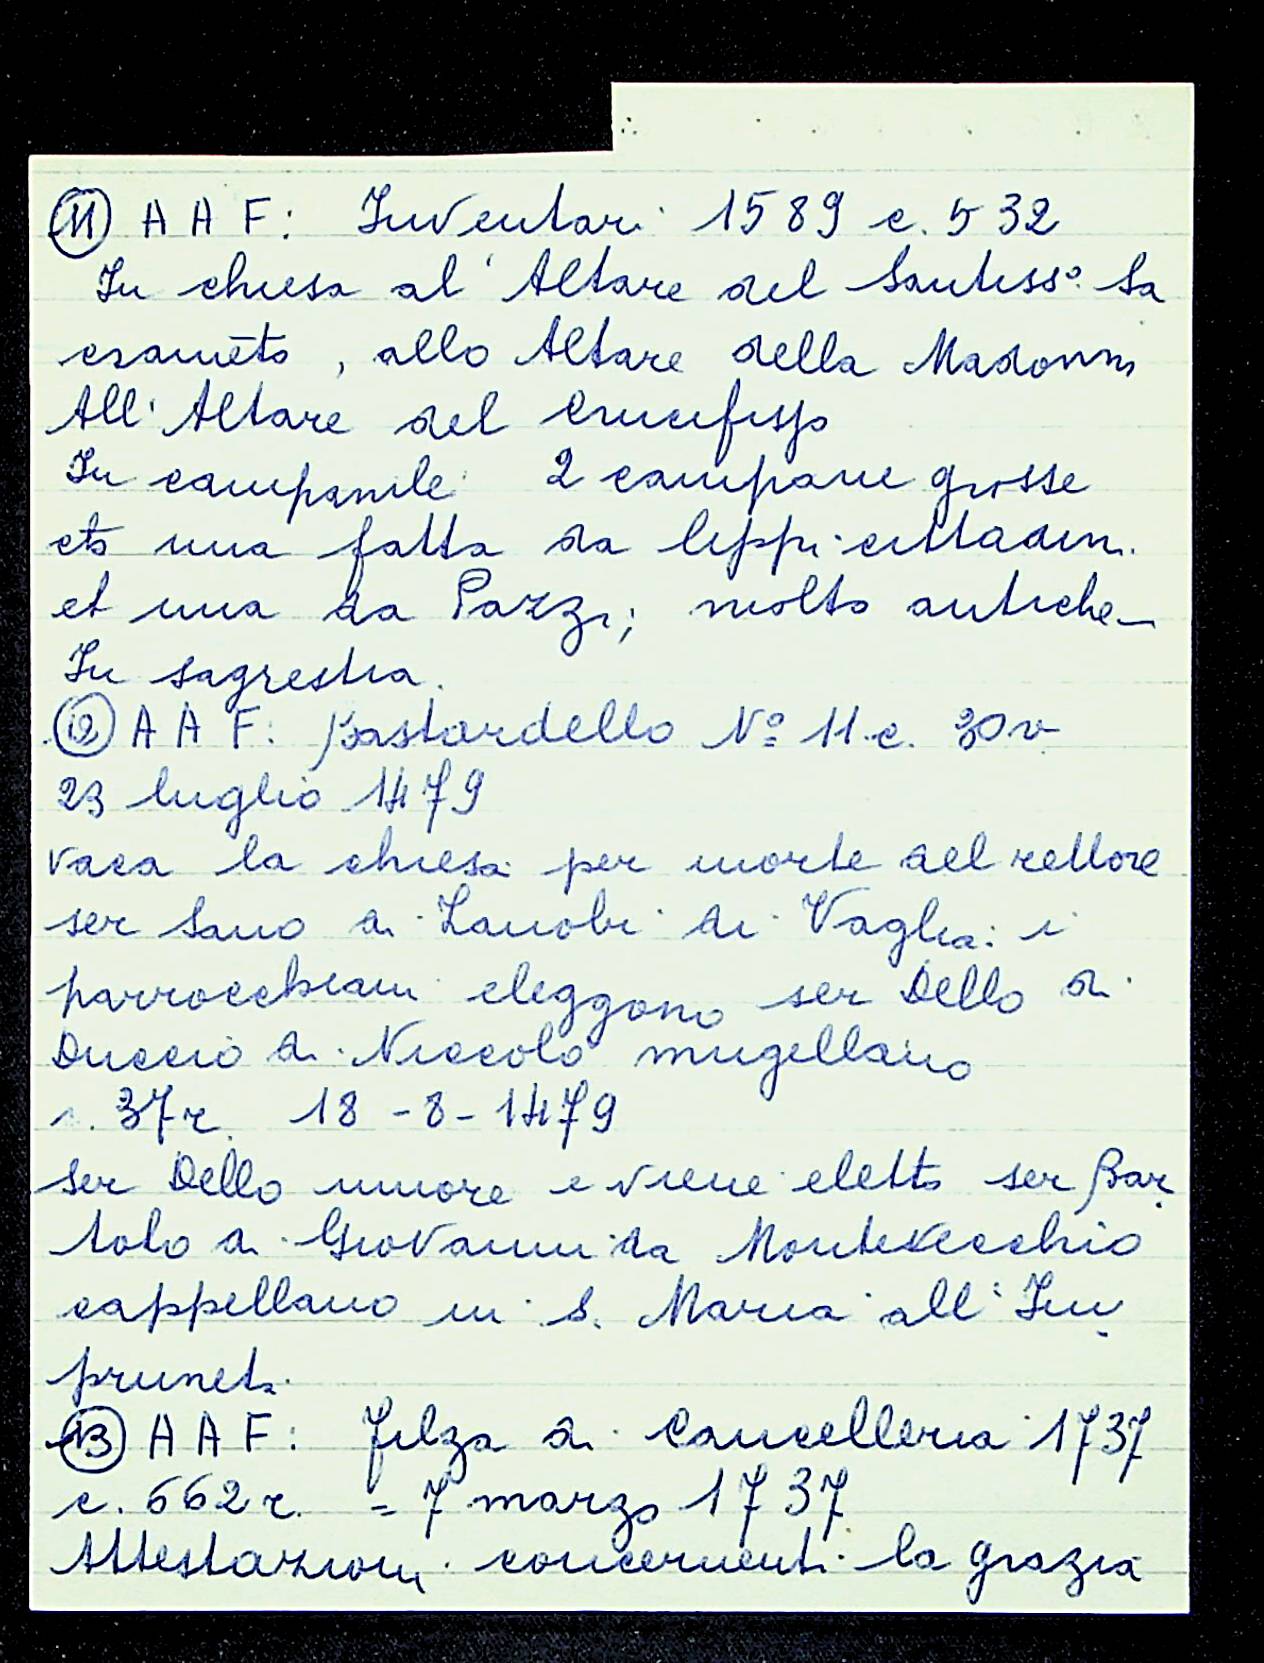 11 A A F: Inventari 1589 c. 532
In chiesa al' Altare del Santiss° Sa
cramēto, allo Altare della Madonna
All' Altare del Crucifisso
In campanile 2 campane grosse
cto una fatta da lippi cittadin.
et una da Pazzi; molto antiche_
In sagrestia.
12 A A F: Bastardello N° 11 c. 30v
23 luglio 1479
vaca la chiesa per morte del rettore
ser Sano di Zanobi di Vaglia: i
parrocchiani eleggono ser Dello di
Duccio di Niccolo mugellano
c. 37r. 18-8-1479
ser Dello muore e viene eletto ser Bar
tolo di Giovanni da Montevecchio
cappellano in S. Maria all' Im
pruneta.
13 A A F: Filza di Cancelleria 1737
c. 662r. = 7 marzo 1737
Attestazioni concernenti la grazia